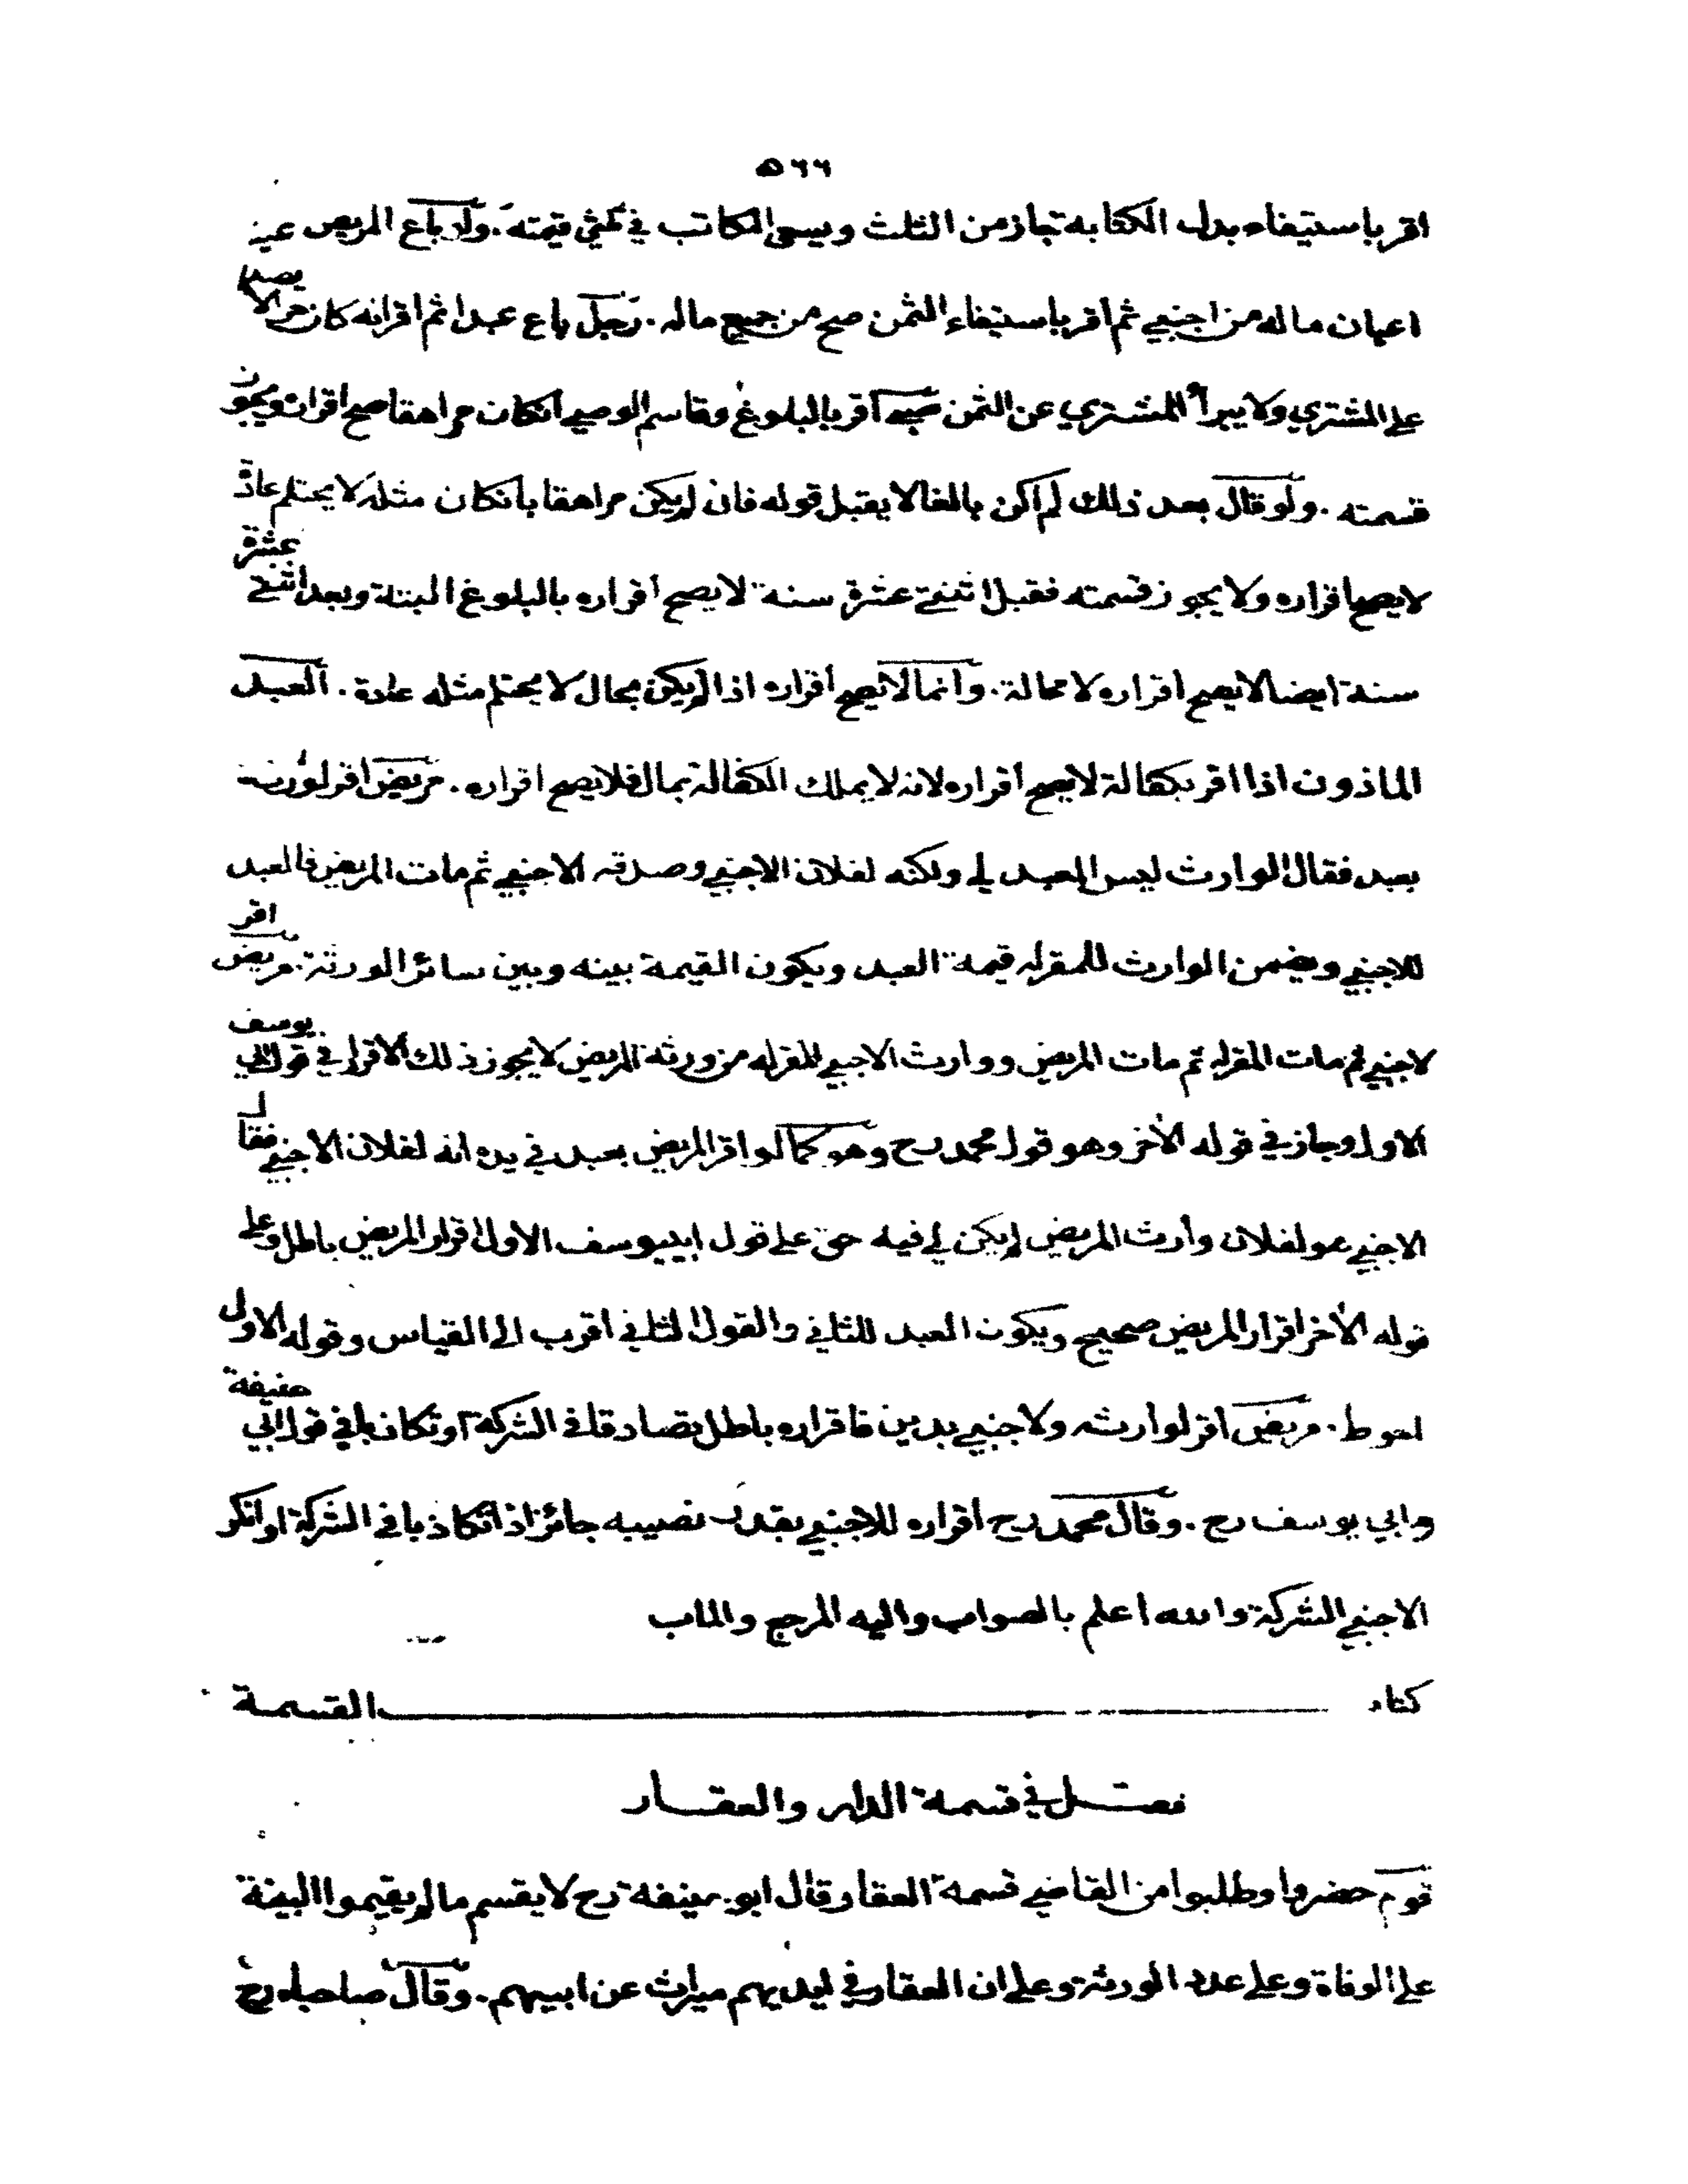 ٥٦٦
اقر باستيفاء بدل الكتابة تجاز من الثلث ويسعى المكاتب في ثلثي قيمته. ولو باع المريض عين
اعيان ماله من اجنبي ثم اقر باستيفاء الثمن صح من جميع ماله. رجل باع عبدا ثم اقر انه كان حرا لا يصدق
على المشتري ولا يبرأ المشتري عن الثمن صبي اقر بالبلوغ وقاسم الوصي انكان مراهقا صح اقراره ويجوز
قسمته. ولو قال بعد ذلك لم اكن بالغا لا يقبل قوله فان لم يكن مراهقا بانكان مثله لا يحتلم عادة
لا يصح اقراره ولا يجوز قسمته فقبل اثنتي عشرة سنة لا يصح اقراره بالبلوغ البتة وبعد اثنتي عشرة
سنة ايضا لا يصح اقراره لا محالة. وانما لا يصح اقراره اذا لم يكن بحال لا يحتلم مثله عادة. العبد
الماذون اذا اقر بكفالة لا يصح اقراره لانه لا يملك الكفالة بمال فلا يصح اقراره. مريض اقر لوارث
بعبد فقال الوارث ليس العبد لي ولكنه لفلان الاجنبي وصدقه الاجنبي ثم مات المريض فالعبد
للاجنبي ويضمن الوارث للمقر له قيمة العبد ويكون القيمة بينه وبين سائر الورثة. مريض اقر
لاجنبي ثم مات المقر له ثم مات المريض ووارث الاجنبي المقر له من ورثة المريض لا يجوز ذلك الاقرار في قول ابي يوسف
الاول وجاز في قوله الآخر وهو قول محمد رح وهو كما لو اقر المريض بعبد في يده انه لفلان الاجنبي فقال
الاجنبي هو لفلان وارث المريض لم يكن لي فيه حق على قول ابي يوسف الاول اقرار المريض باطل وعلى
قوله الآخر اقرار المريض صحيح ويكون العبد للثاني والقول الثاني اقرب الى القياس وقوله الاول
احوط. مريض اقر لوارثه ولاجنبي بدين فاقراره باطل تصادقا في الشركة او تكاذبا في قول ابي حنيفة
وابي يوسف رح. وقال محمد رح اقراره للاجنبي بقدر نصيبه جائز اذا تكاذبا في الشركة او انكر
الاجنبي الشركة والله اعلم بالصواب واليه المرجع والماب
كتاب القسمة
فصل في قسمة الدار والعقار
قوم حضروا وطلبوا من القاضي قسمة العقار قال ابو حنيفة رح لا يقسم ما لم يقيموا البينة
على الوفاة وعلى عدد الورثة وعلى ان العقار في ايديهم ميراث عن ابيهم. وقال صاحباه رح